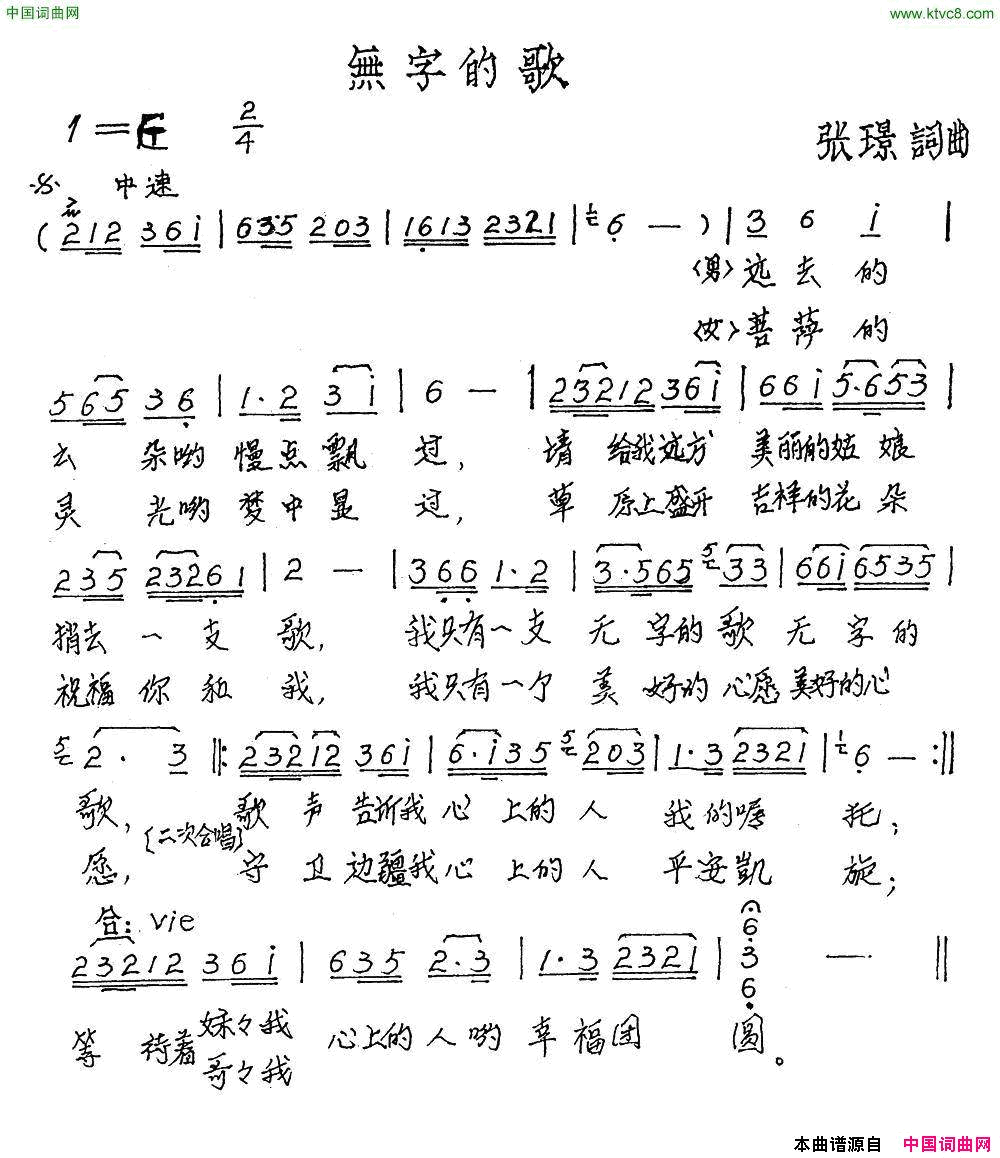 中国词曲网 www.ktvc8.com
無字的歌
1=E 2/4
张璟詞曲
中速
(212 36i | 635 203 | 1613 2321 | 6 — ) | 3 6 i |
〈男〉远去的
〈女〉菩萨的
565 36 | 1·2 3i | 6 — | 23212 36i | 66i 5·653 |
云朵哟慢点飘过, 请给我远方美丽的姑娘
灵光哟梦中显过, 草原上盛开吉祥的花朵
235 23261 | 2 — | 366 1·2 | 3·565 5 33 | 66i 6535 |
捎去一支歌, 我只有一支无字的歌无字的
祝福你和我, 我只有一个美好的心愿美好的心
5 2· 3 ‖: 23212 36i | 6·i35 5 203 | 1·3 2321 | 6 — :‖
歌, 歌声告诉我心上的人我的嘱托;
(二次合唱)
愿, 守卫边疆我心上的人平安凱旋;
合: vie
23212 36i | 635 2·3 | 1·3 2321 | 6 3 6 — ‖
等待着妹々我心上的人哟幸福团圆。
哥々我
本曲谱源自 中国词曲网